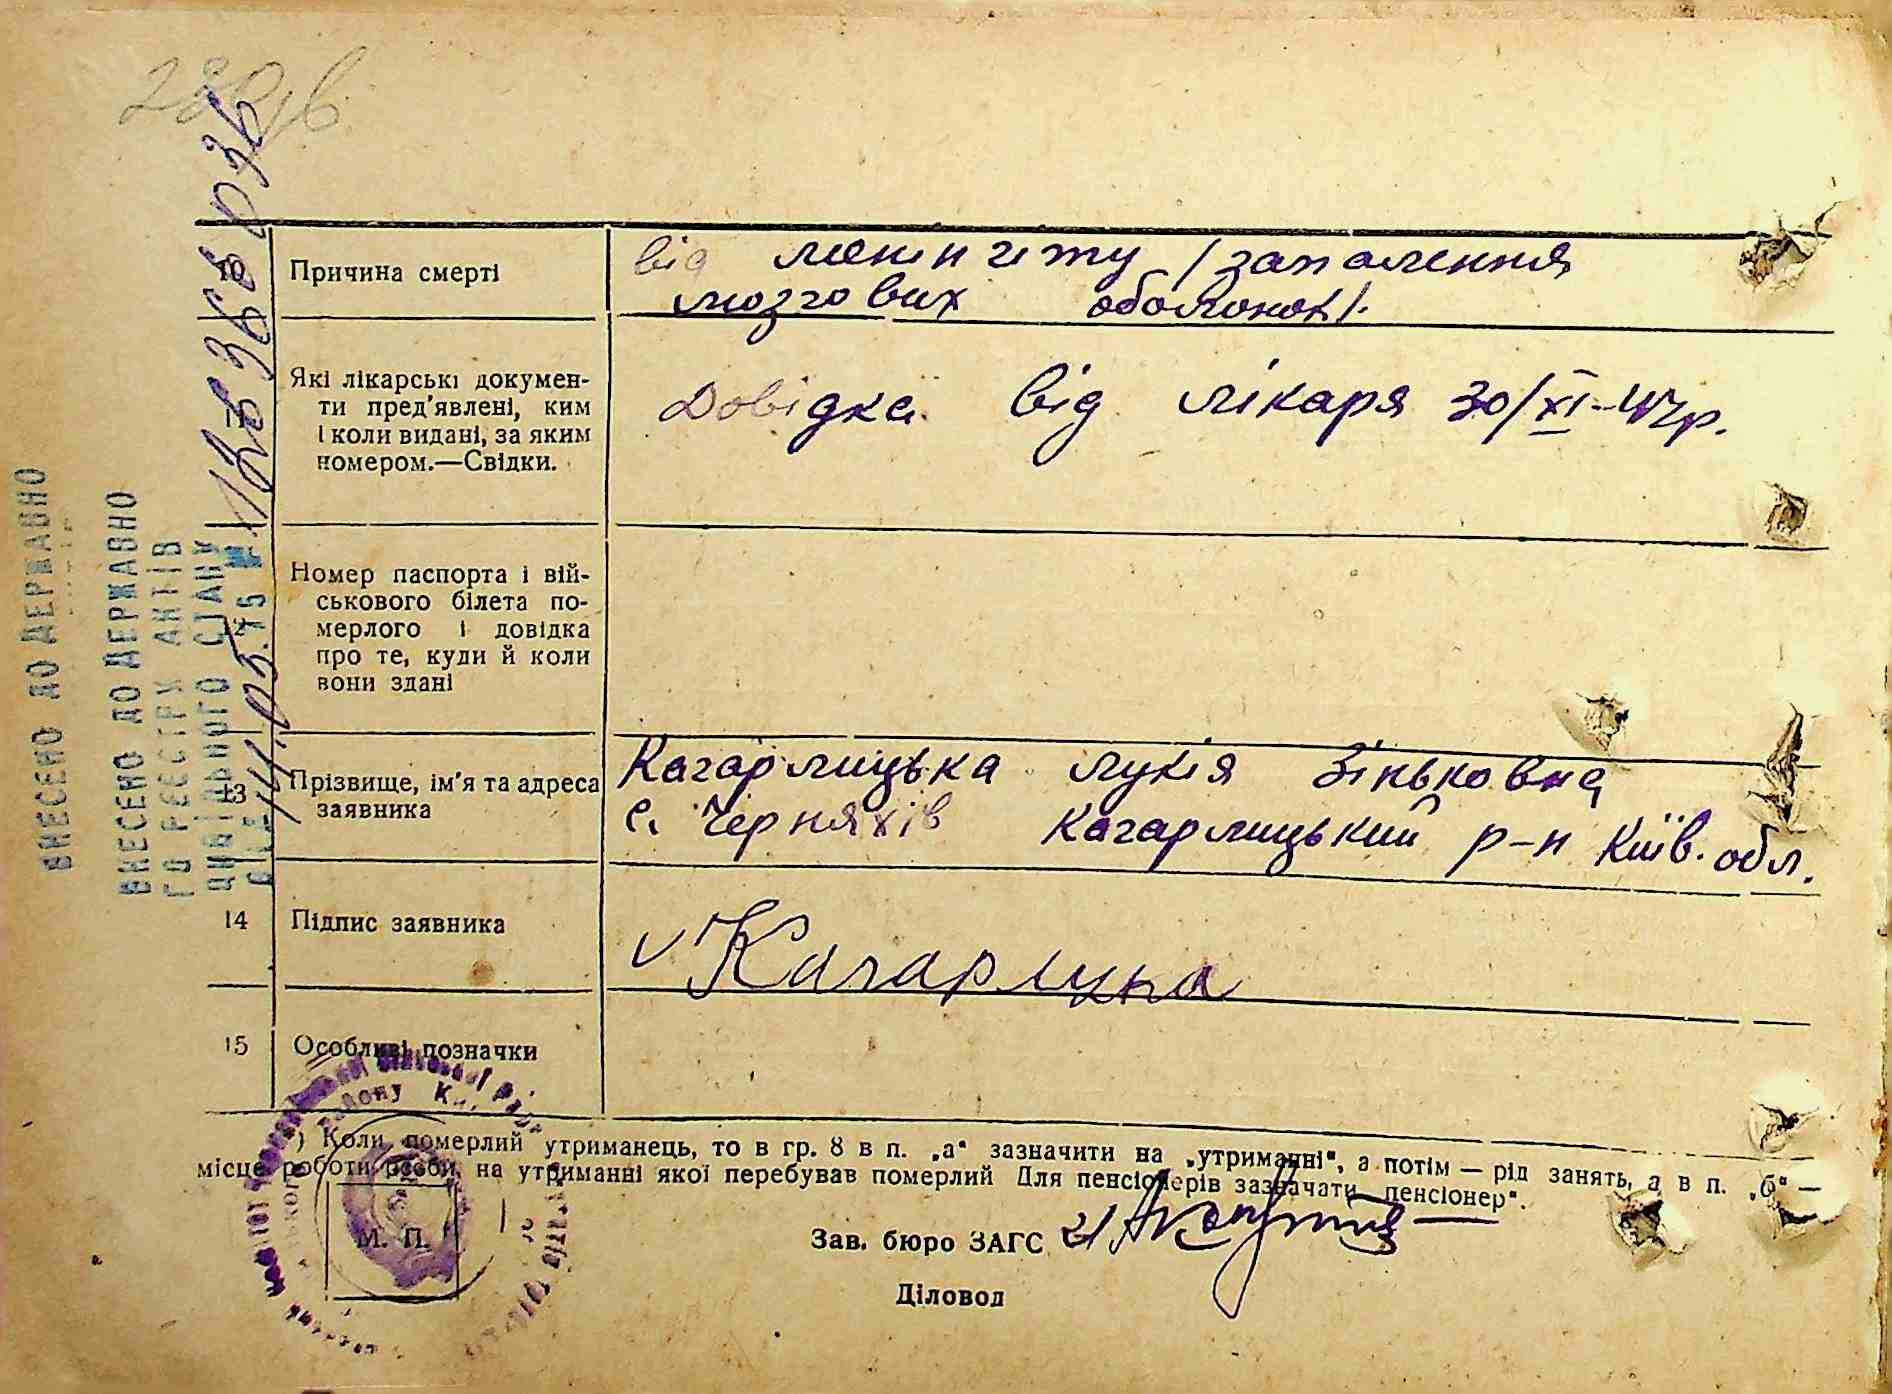 10 Причина смерті
від менінгіту /запалення
мозгових оболонок/.
11 Які лікарські докумен-
ти пред'явлені, ким
і коли видані, за яким
номером.—Свідки.
Довідка від лікаря 30/XI-47р.
12 Номер паспорта і вій-
ськового білета по-
мерлого і довідка
про те, куди й коли
вони здані
13 Прізвище, ім'я та адреса
заявника
Кагарлицька Лукія Зіньковна
с. Черняхів Кагарлицький р-н Київ. обл.
14 Підпис заявника
Кагарлицка
15 Особливі позначки
*) Коли померлий утриманець, то в гр. 8 в п. „а" зазначити на „утриманні", а потім — рід занять, а в п. „б" —
місце роботи особи, на утриманні якої перебував померлий Для пенсіонерів зазначати „пенсіонер".
М. П.
Зав. бюро ЗАГС
Діловод
ВНЕСЕНО ДО ДЕРЖАВНО
ВНЕСЕНО ДО ДЕРЖАВНО
ГО РЕЄСТРУ АКТІВ
ЦИВІЛЬНОГО СТАНУ